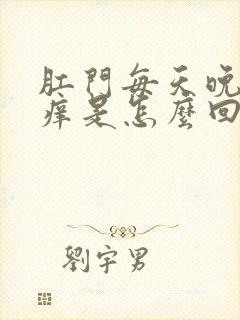 肛門每天晚
癢是怎麼回
劉宇男